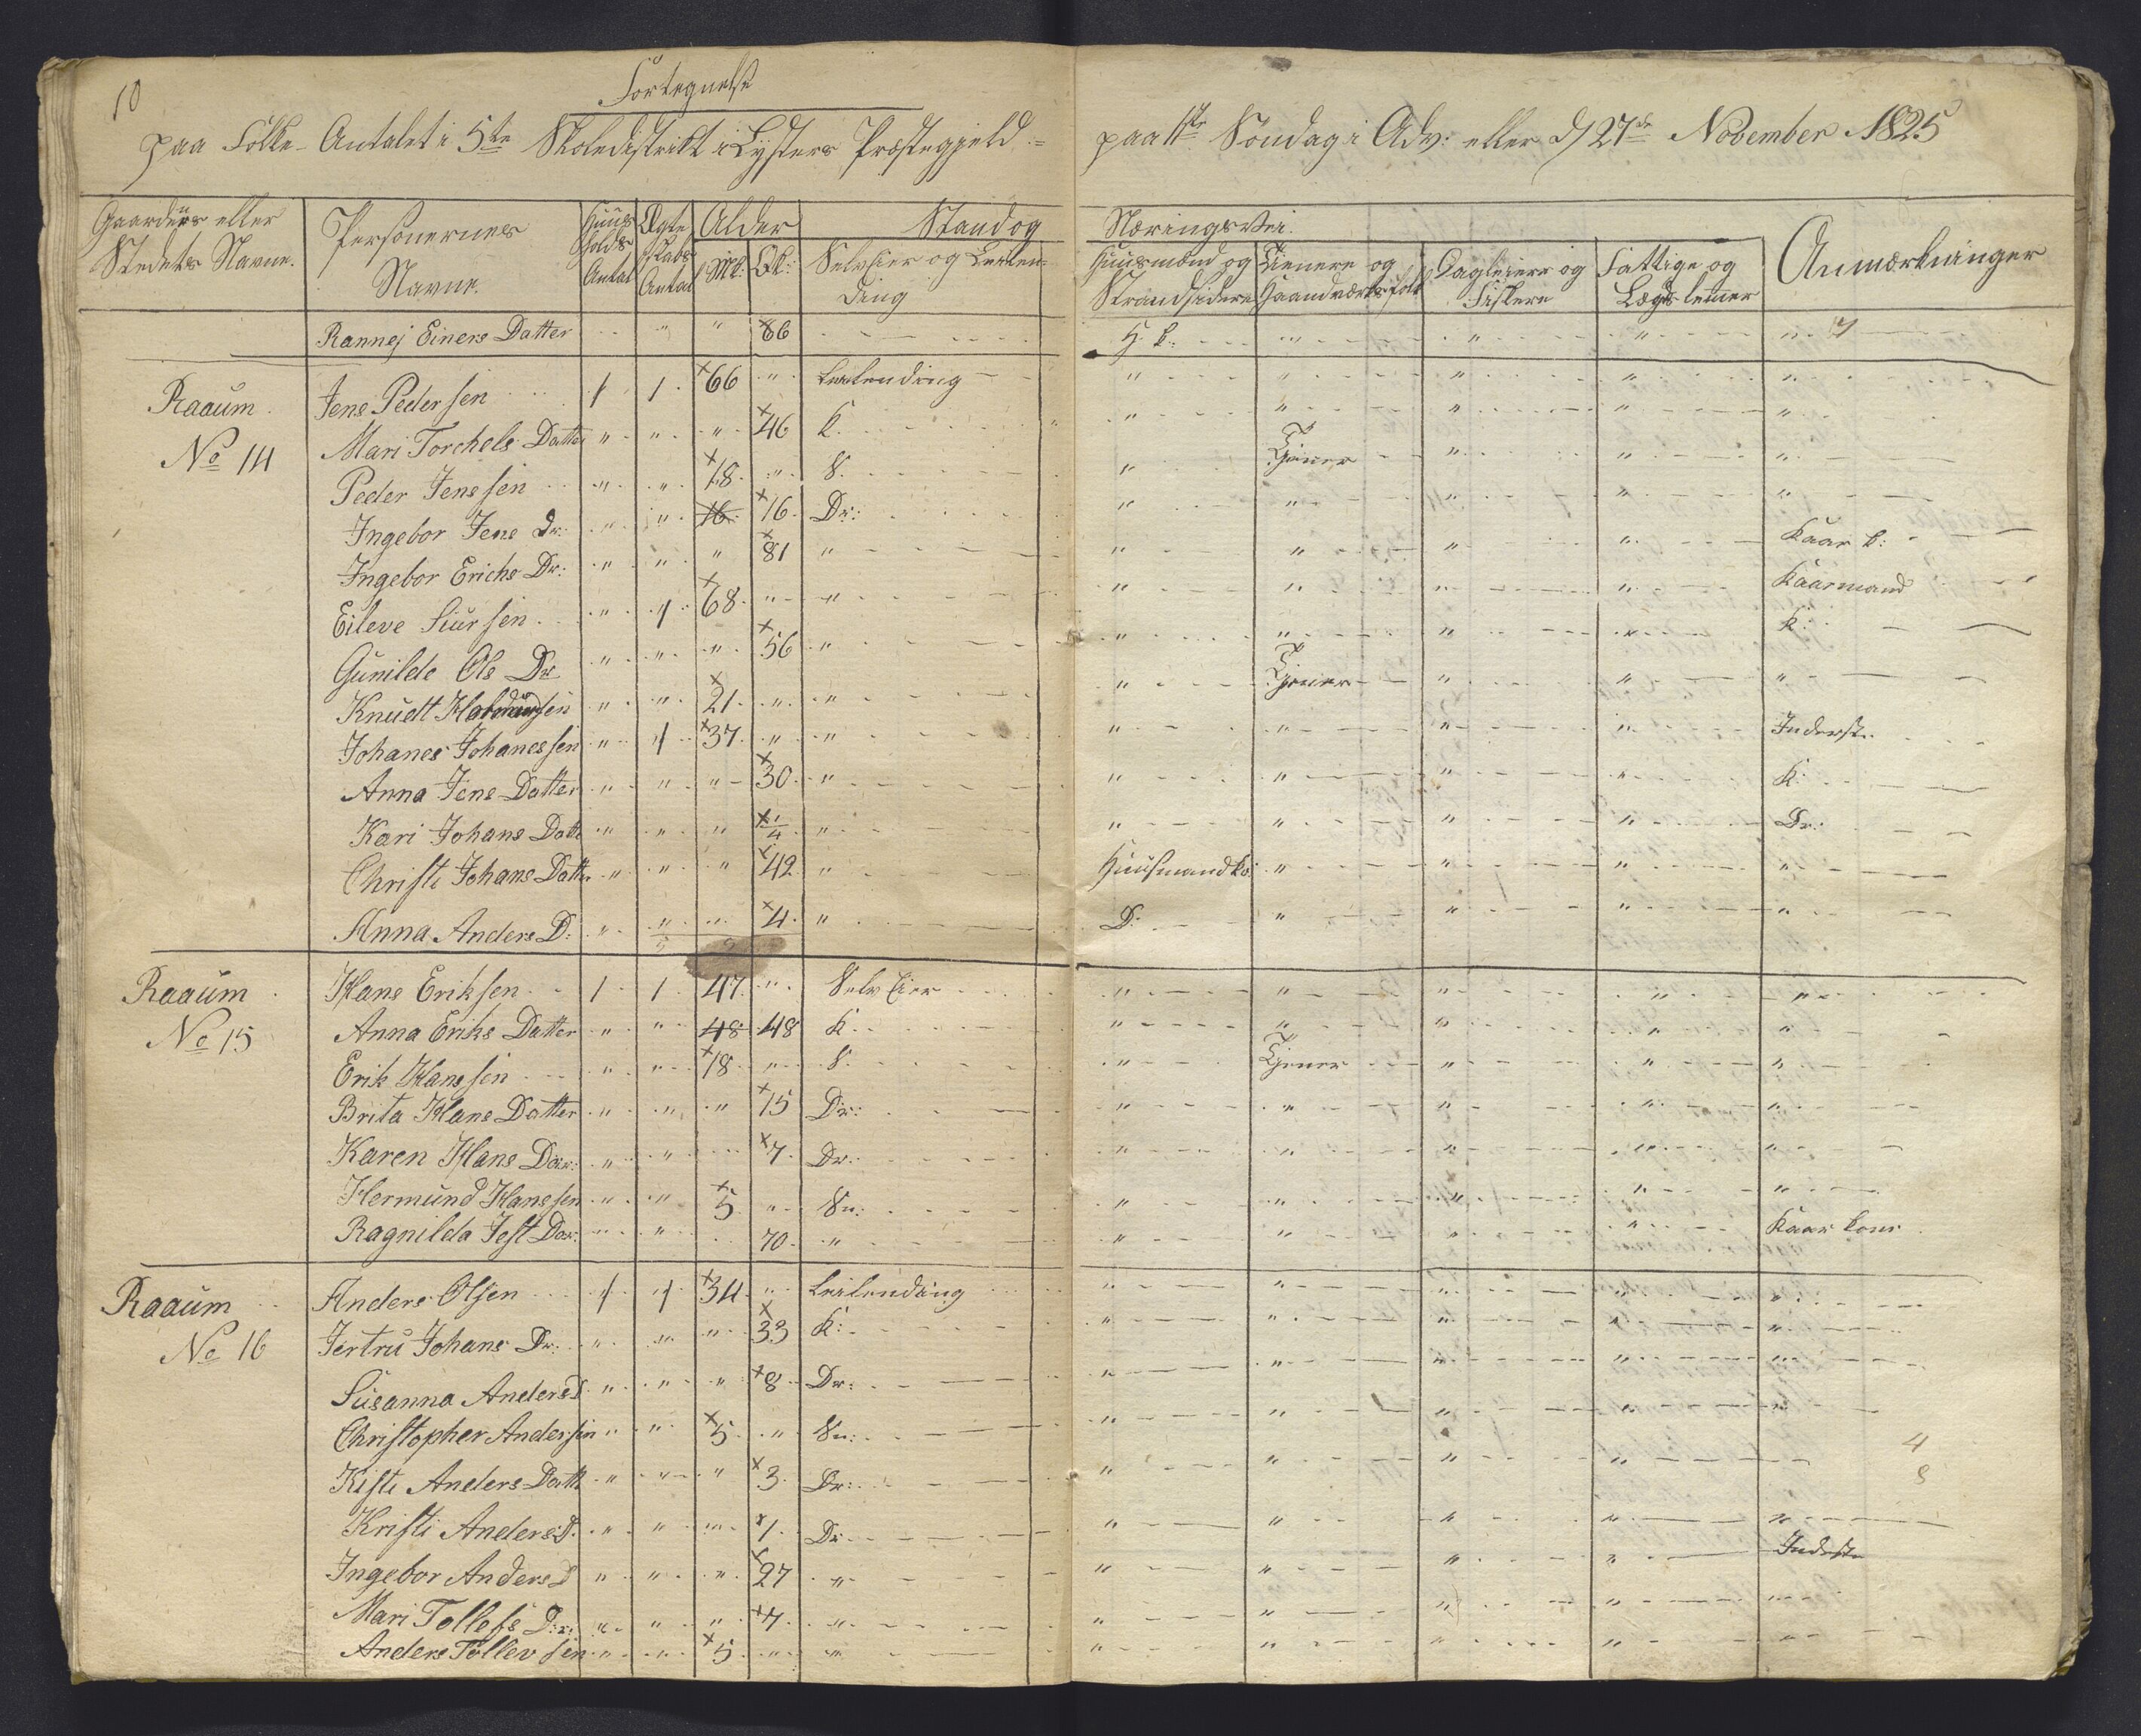 10
Fortegnelse
paa Folke-Antalet i 5te Skoledistrikt i Lysters Præstegjeld
paa 1ste Søndag i Adv: eller d/ 27de November 1825
Gaardens eller Stedets Navne. | Personernes Navne. | Huus holds Antal | Ægte skabs Antal | Alder | Mk: | Qk: | Stand og Næringsvei.
Selv Eier og Leilending | Huusmænd og Strandsidere | Tienere og Haandværksfolk | Dagleiere og Fiskere | Fattige og Lægdslemmer | Anmærkninger
Rannej Einers Datter " " 86 H. k:
Raaum Jens Pedersen 1 1 66 " Leilending
No 14 Mari Torchels Datter " " " 46 K.
Peder Jenssen " " 18 " S. Tjener
Ingebor Jens Dr: " " 16 16 Dr:
Ingebor Erichs Dr: " " " 81 " Kaar k:
Eileve Siursen " 1 68 " " Kaarmand
Gunilde Ols Dr " " " 56 " K:
Knudt Haldorsen " " 21 " " Tjener
Johanes Johanessen " 1 37 " " Inderst
Anna Jens Datter " " " 30 " K:
Kari Johans Datt " " " 1/4 " Dr:
Christi Johans Datter " " " 42 " Huusmandko:
Anna Anders D: " " " 4 " D:
Raaum Hans Eriksen 1 1 47 " Selv Eier
No 15 Anna Eriks Datter " " 48 48 K.
Erik Hanssen " " 18 " S. Tjener
Brita Hans Datter " " " 15 Dr:
Karen Hans Dar: " " 7 Dr:
Hermund Hanssen " " 5 " Sn:
Ragnilda Jest Dar: " " 70 " Kaar kone
Raaum Anders Olsen 1 1 34 " Leilending
No 16 Jertru Johans Dr: " " " 33 K:
Susanna Anders D " " " 8 Dr:
Christopher Andersen " " 5 " Sn:
Kisti Anders Datt " " " 3 Dr:
4
Kristi Anders D. " " " 1 Dr
Ingebor Anders D " " " 27 " Inderst
Mari Tollefs Dr: " " " 7 "
Anders Tollevsen " " 5 " "